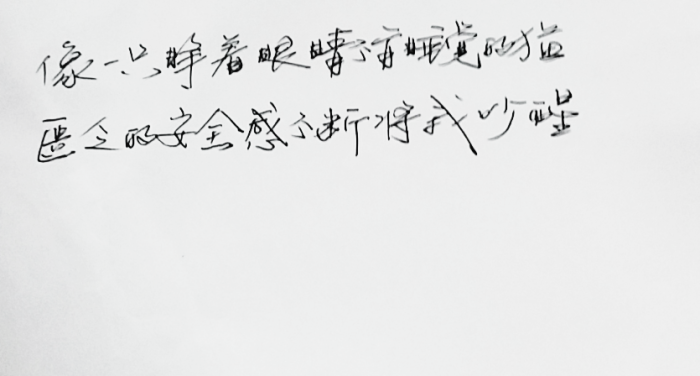 像一只睁着眼睛不肯睡觉的猫
匮乏的安全感不断将我吵醒